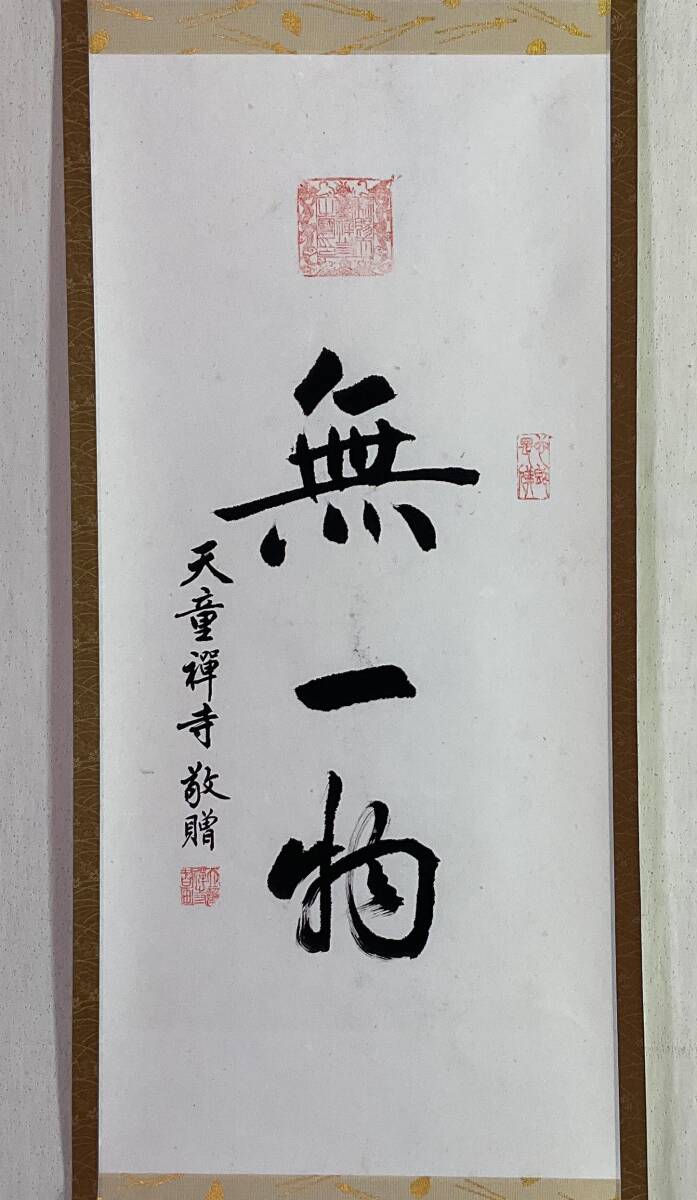 無一物
天童禪寺敬贈